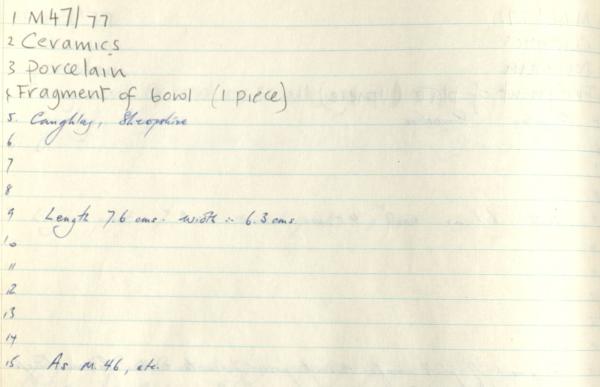 1 M47/77
2 Ceramics
3 porcelain
4 Fragment of bowl (1 piece)
5. Caughley, Shropshire
6.
7
8
9 Length 7.6 cms. width :- 6.3 cms.
10
11
12
13
14
15 As M.46, etc.